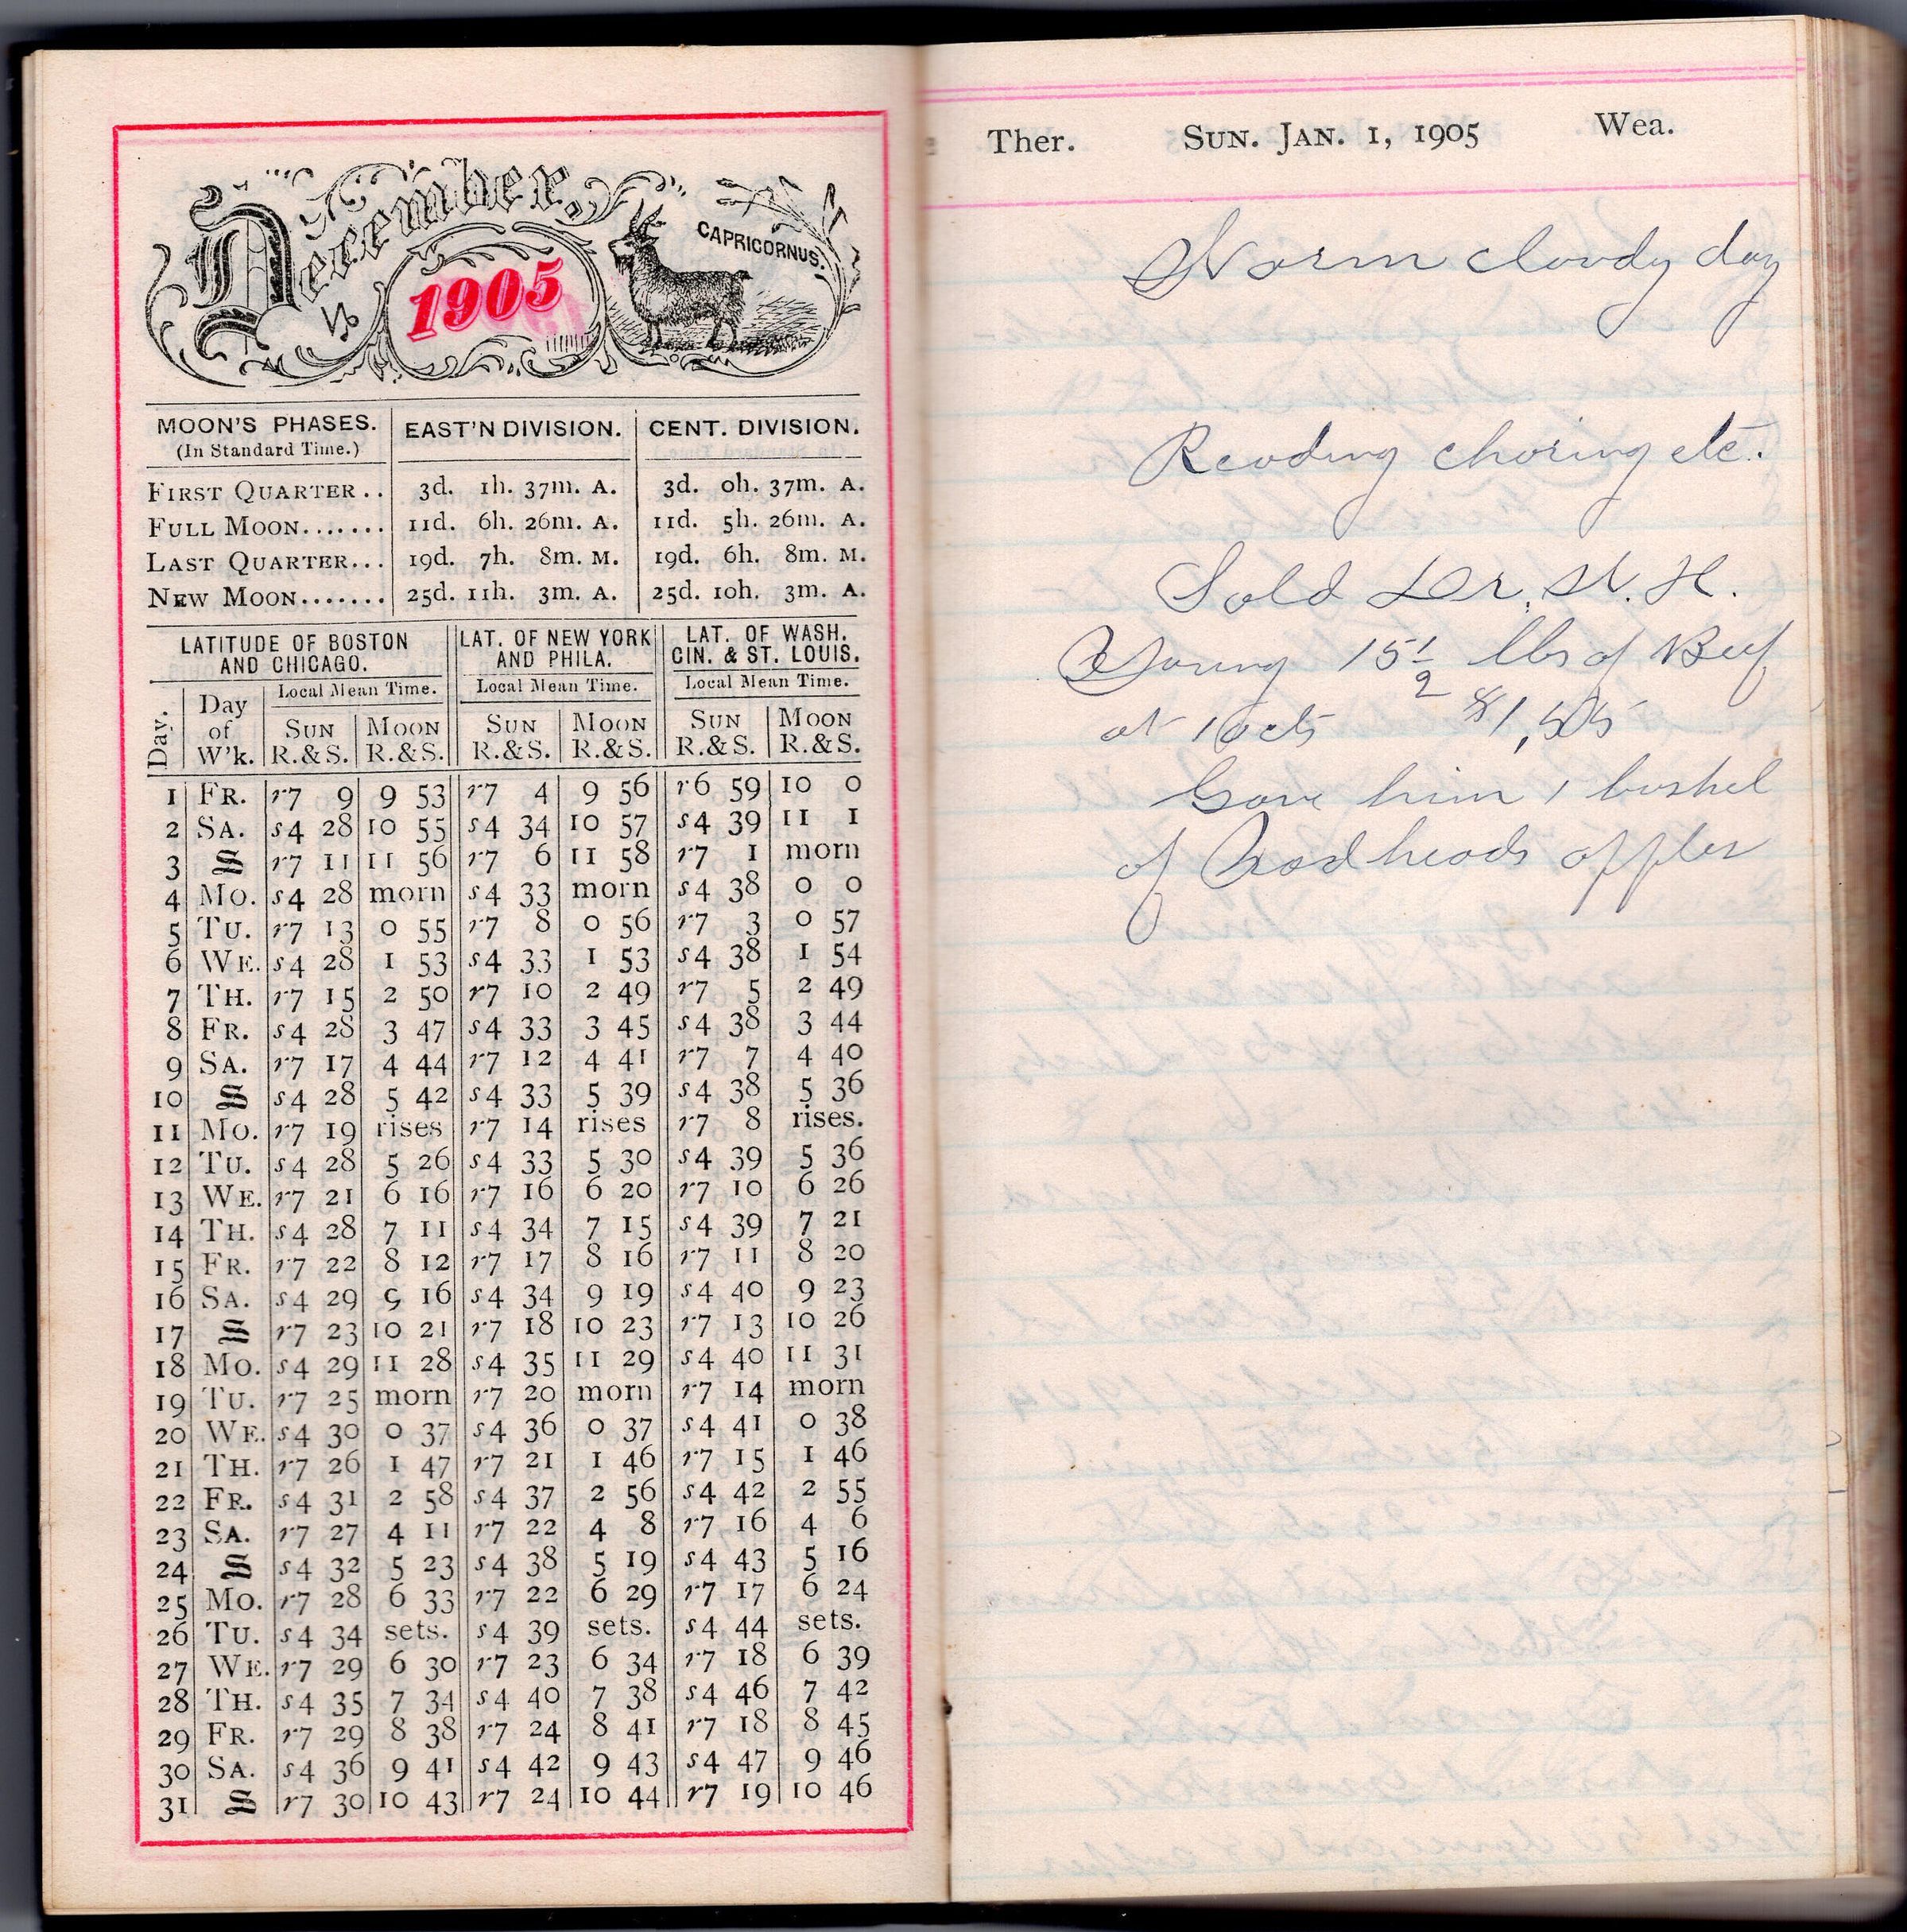 December,
1905
CAPRICORNUS.
MOON'S PHASES. EAST'N DIVISION. CENT. DIVISION.
(In Standard Time.)
FIRST QUARTER.. 3d. 1h. 37m. A. 3d. 0h. 37m. A.
FULL MOON....... 11d. 6h. 26m. A. 11d. 5h. 26m. A.
LAST QUARTER... 19d. 7h. 8m. M. 19d. 6h. 8m. M.
NEW MOON....... 25d. 11h. 3m. A. 25d. 10h. 3m. A.
LATITUDE OF BOSTON LAT. OF NEW YORK LAT. OF WASH.
AND CHICAGO. AND PHILA. CIN. & ST. LOUIS.
Local Mean Time. Local Mean Time. Local Mean Time.
Day. Day of W'k. SUN MOON SUN MOON SUN MOON
R.&S. R.&S. R.&S. R.&S. R.&S. R.&S.
1 FR. r7 9 9 53 r7 4 9 56 r6 59 10 0
2 SA. s4 28 10 55 s4 34 10 57 s4 39 11 1
3 S r7 11 11 56 r7 6 11 58 r7 1 morn
4 MO. s4 28 morn s4 33 morn s4 38 0 0
5 TU. r7 13 0 55 r7 8 0 56 r7 3 0 57
6 WE. s4 28 1 53 s4 33 1 53 s4 38 1 54
7 TH. r7 15 2 50 r7 10 2 49 r7 5 2 49
8 FR. s4 28 3 47 s4 33 3 45 s4 38 3 44
9 SA. r7 17 4 44 r7 12 4 41 r7 7 4 40
10 S s4 28 5 42 s4 33 5 39 s4 38 5 36
11 MO. r7 19 rises r7 14 rises r7 8 rises.
12 TU. s4 28 5 26 s4 33 5 30 s4 39 5 36
13 WE. r7 21 6 16 r7 16 6 20 r7 10 6 26
14 TH. s4 28 7 11 s4 34 7 15 s4 39 7 21
15 FR. r7 22 8 12 r7 17 8 16 r7 11 8 20
16 SA. s4 29 9 16 s4 34 9 19 s4 40 9 23
17 S r7 23 10 21 r7 18 10 23 r7 13 10 26
18 MO. s4 29 11 28 s4 35 11 29 s4 40 11 31
19 TU. r7 25 morn r7 20 morn r7 14 morn
20 WE. s4 30 0 37 s4 36 0 37 s4 41 0 38
21 TH. r7 26 1 47 r7 21 1 46 r7 15 1 46
22 FR. s4 31 2 58 s4 37 2 56 s4 42 2 55
23 SA. r7 27 4 11 r7 22 4 8 r7 16 4 6
24 S s4 32 5 23 s4 38 5 19 s4 43 5 16
25 MO. r7 28 6 33 r7 22 6 29 r7 17 6 24
26 TU. s4 34 sets. s4 39 sets. s4 44 sets.
27 WE. r7 29 6 30 r7 23 6 34 r7 18 6 39
28 TH. s4 35 7 34 s4 40 7 38 s4 46 7 42
29 FR. r7 29 8 38 r7 24 8 41 r7 18 8 45
30 SA. s4 36 9 41 s4 42 9 43 s4 47 9 46
31 S r7 30 10 43 r7 24 10 44 r7 19 10 46
Ther. SUN. JAN. 1, 1905 Wea.
Warm cloudy day
Reading choring etc.
Sold Dr. W. H.
Young 15½ lbs of Beef
at 10cts $1,55
Gave him 1 bushel
of heads apples